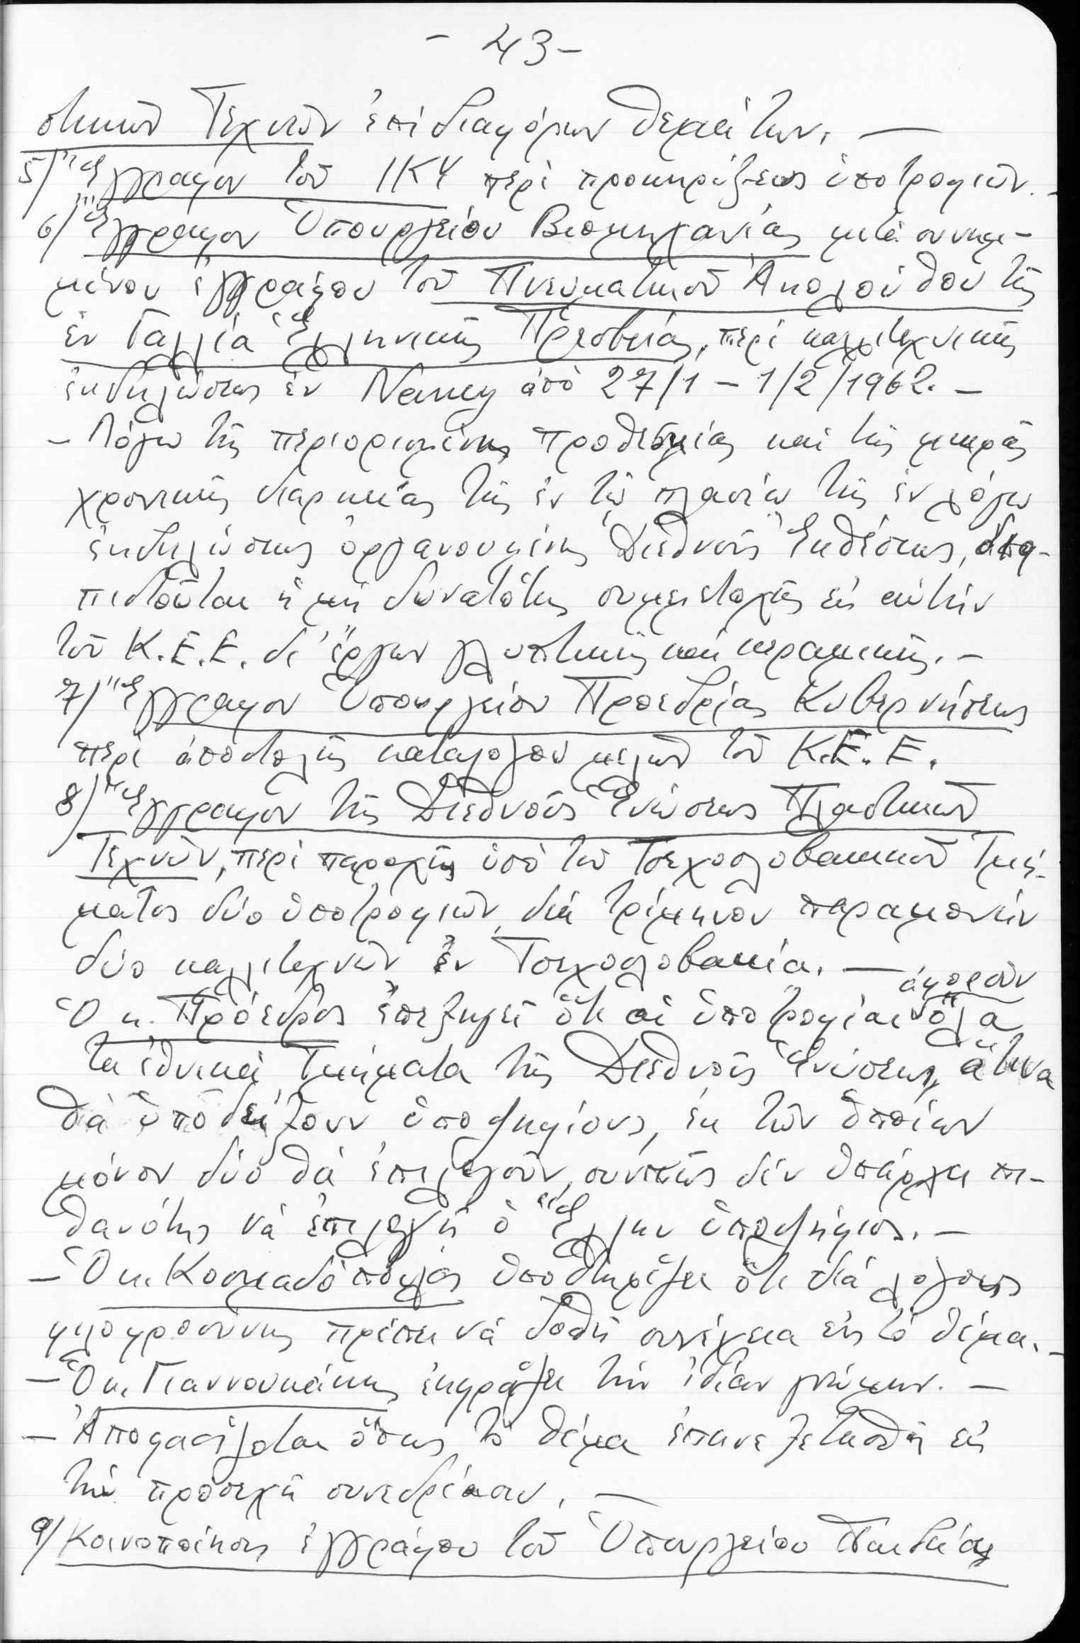 - 43 -
στικῶν Τεχνῶν ἐπί διαφόρων θεμάτων. —
5/ Ἔγγραφον τοῦ ΙΚΥ περί προκηρύξεως ὑποτροφιῶν. -
6/ Ἔγγραφον Ὑπουργείου Βιομηχανίας μετά συνημ-
μένου ἐγγράφου τοῦ Πνευματικοῦ Ἀκολούθου τῆς
ἐν Γαλλίᾳ Ἑλληνικῆς Πρεσβείας, περί καλλιτεχνικῆς
ἐκδηλώσεως ἐν Nancy ἀπό 27/1 - 1/2/1962. -
- Λόγω τῆς περιορισμένης προθεσμίας καί τῆς μικρᾶς
χρονικῆς διαρκείας τῆς ἐν τῷ πλαισίῳ τῆς ἐν λόγῳ
ἐκδηλώσεως ὀργανουμένης Διεθνοῦς Ἐκθέσεως, δια-
πιστοῦται ἡ μή δυνατότης συμμετοχῆς εἰς αὐτήν
τοῦ Κ.Ε.Ε. δι' ἔργων γλυπτικῆς καί κεραμικῆς. -
7/ Ἔγγραφον Ὑπουργείου Προεδρίας Κυβερνήσεως
περί ἀποστολῆς καταλόγου μελῶν τοῦ Κ.Ε.Ε.
8/ Ἔγγραφον τῆς Διεθνοῦς Ἑνώσεως Πλαστικῶν
Τεχνῶν, περί παροχῆς ὑπό τοῦ Τσεχοσλοβακικοῦ Τμή-
ματος δύο ὑποτροφιῶν διά τρίμηνον παραμονήν
δύο καλλιτεχνῶν ἐν Τσεχοσλοβακίᾳ. —
Ὁ κ. Πρόεδρος ἐπεξηγεῖ ὅτι αἱ ὑποτροφίαι ἀφοροῦν ὅλα
τα ἐθνικά Τμήματα τῆς Διεθνοῦς Ἑνώσεως, ἅτινα
θά ὑποδείξουν ὑποψηφίους, ἐκ τῶν ὁποίων
μόνον δύο θά ἐπιλεγοῦν, συνεπῶς δέν ὑπάρχει πι-
θανότης νά ἐπιλεγῇ ὁ Ἕλλην ὑποψήφιος. -
- Ὁ κ. Κοσμαδόπουλος ὑποστηρίζει ὅτι διά λόγους
φιλοφροσύνης πρέπει νά δοθῇ συνέχεια εἰς τό θέμα. -
- Ὁ κ. Γιαννουκάκης ἐκφράζει τήν ἰδίαν γνώμην. -
- Ἀποφασίζεται ὅπως τό θέμα ἐπανεξετασθῇ εἰς
τήν προσεχῆ συνεδρίασιν. —
9/ Κοινοποίησις ἐγγράφου τοῦ Ὑπουργείου Παιδείας